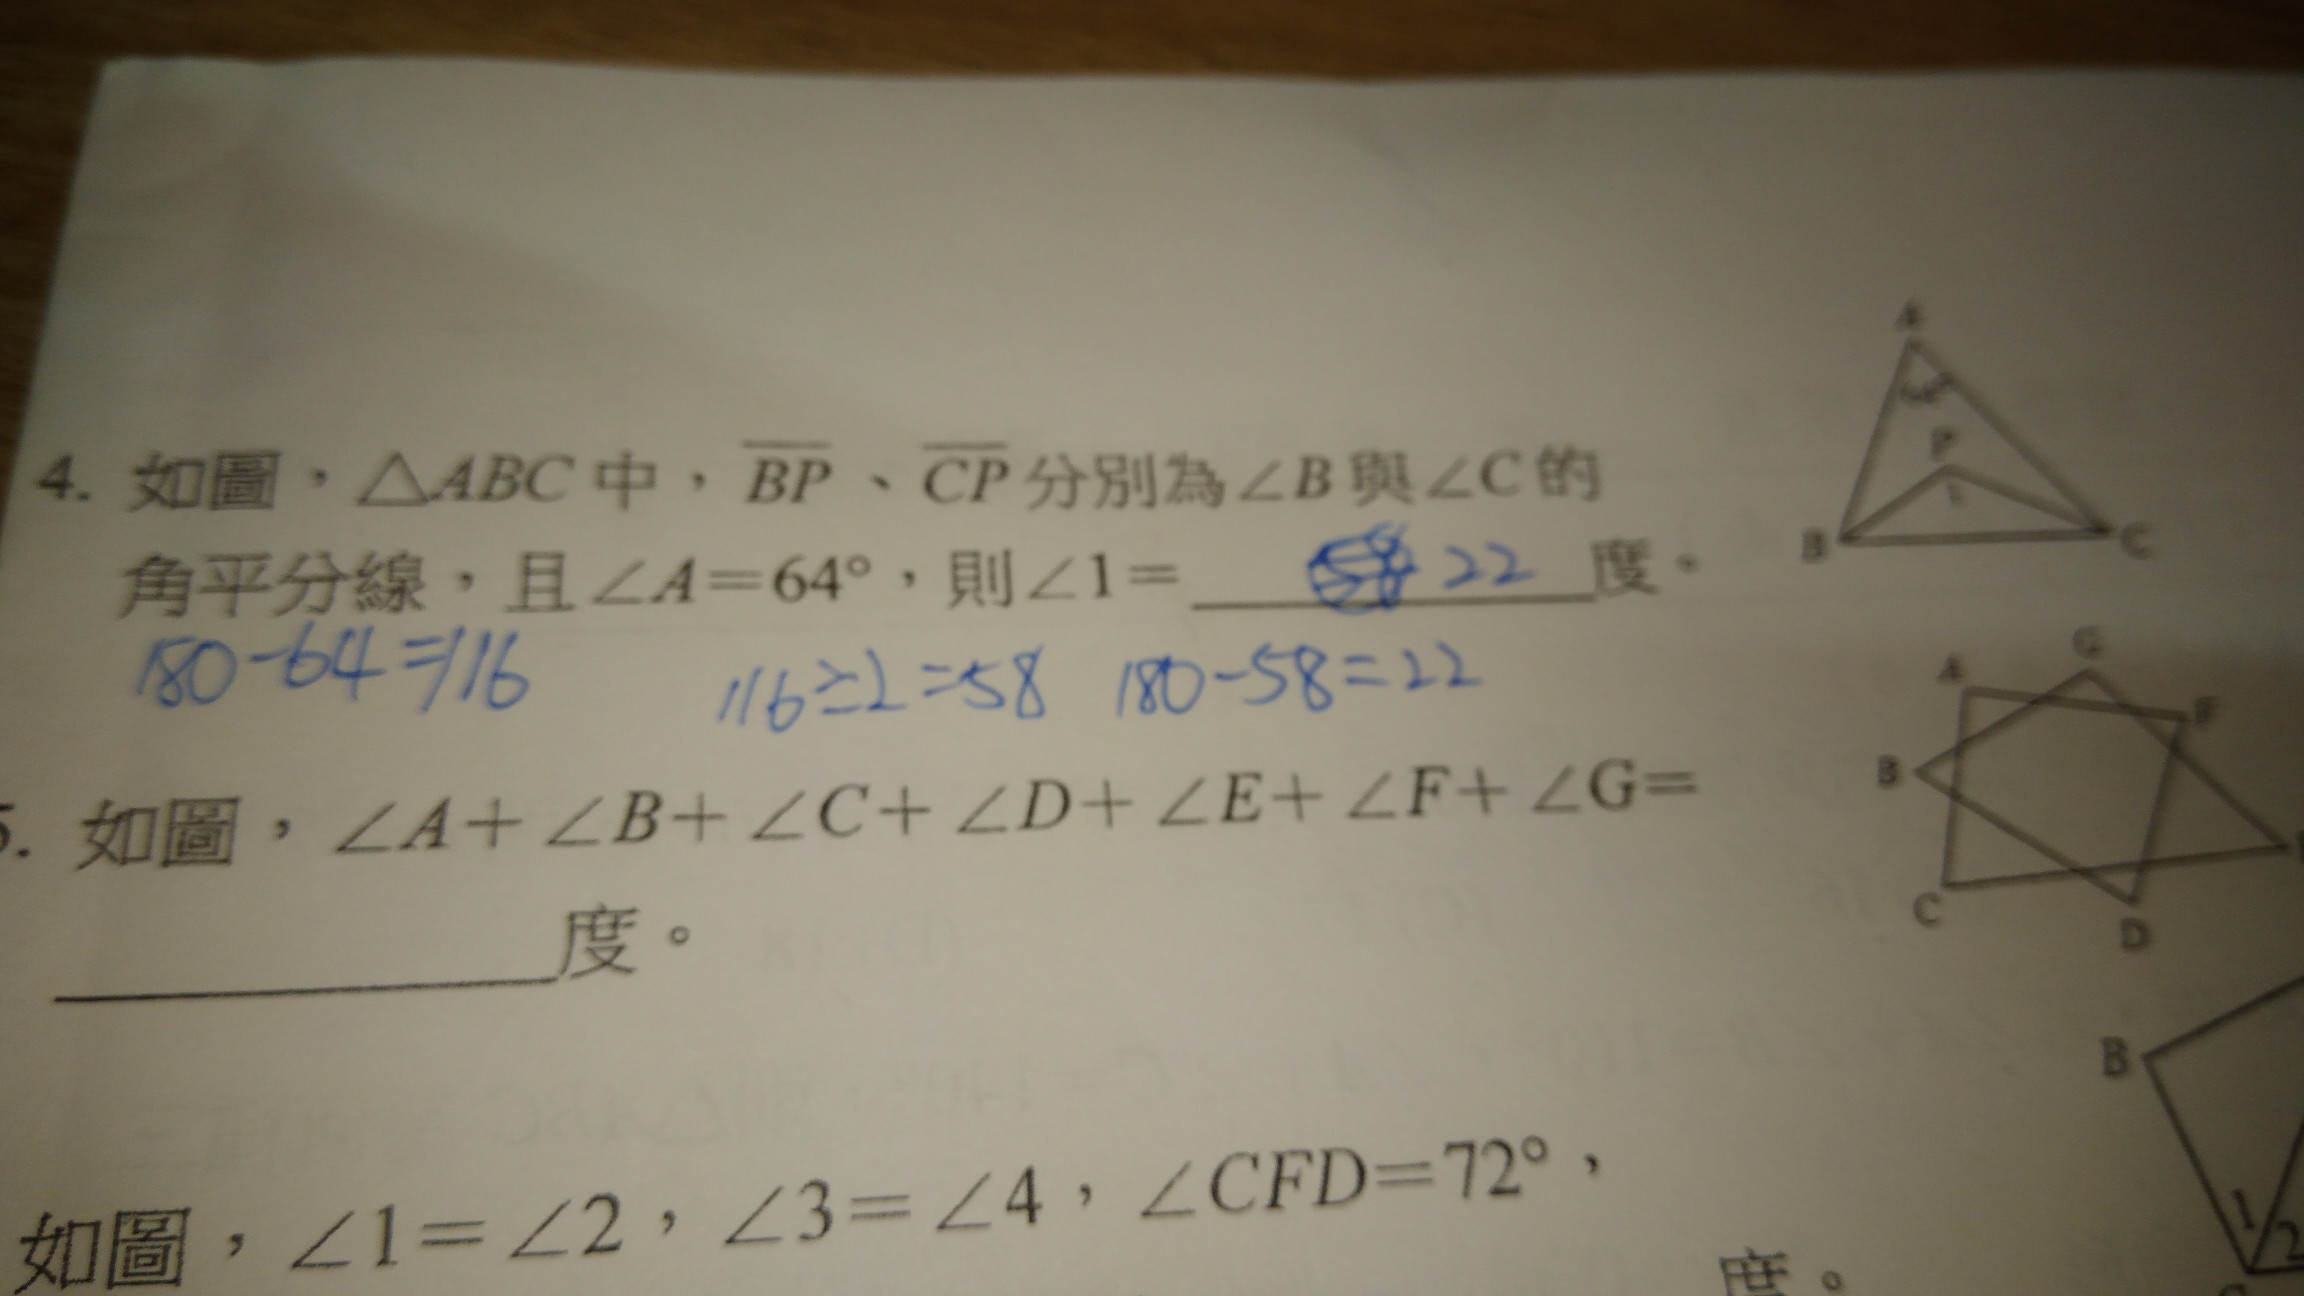 4. 如圖，△ABC中，BP、CP分別為∠B與∠C的
角平分線，且∠A=64°，則∠1= 22 度。
180-64=116 116÷2=58 180-58=22
A
P
1
B C
5. 如圖，∠A+∠B+∠C+∠D+∠E+∠F+∠G=
度。
G
A F
B
C
D
如圖，∠1=∠2，∠3=∠4，∠CFD=72°，
度。
B
1 2